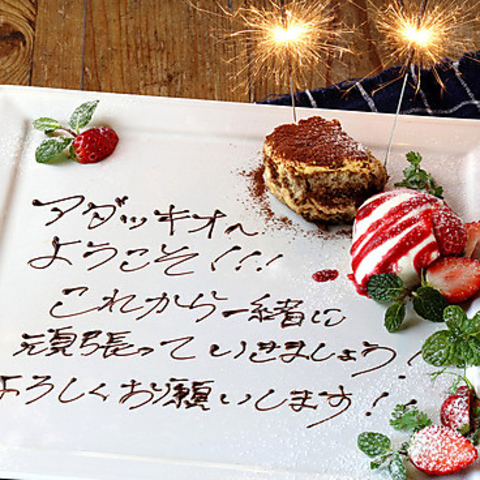 アダッキオへ
ようこそ!!!
これから一緒に
頑張っていきましょう!
よろしくお願いします!!